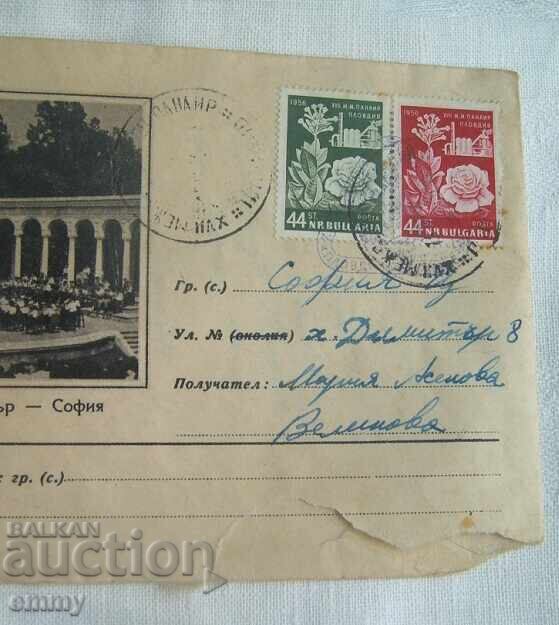 1956 XVII М.М. ПАНАИР
ПЛОВДИВ
44 ST. ПОЩА
N.R. BULGARIA
1956 XVII М.М. ПАНАИР
ПЛОВДИВ
44 ST. ПОЩА
N.R. BULGARIA
ПАНАИР
Гр. (с.) София
Ул. № (околия) х. Димитър 8
Получател: Мария Желова
Великова
ър — София
: гр. (с.)
BALKAN
auction
emmy